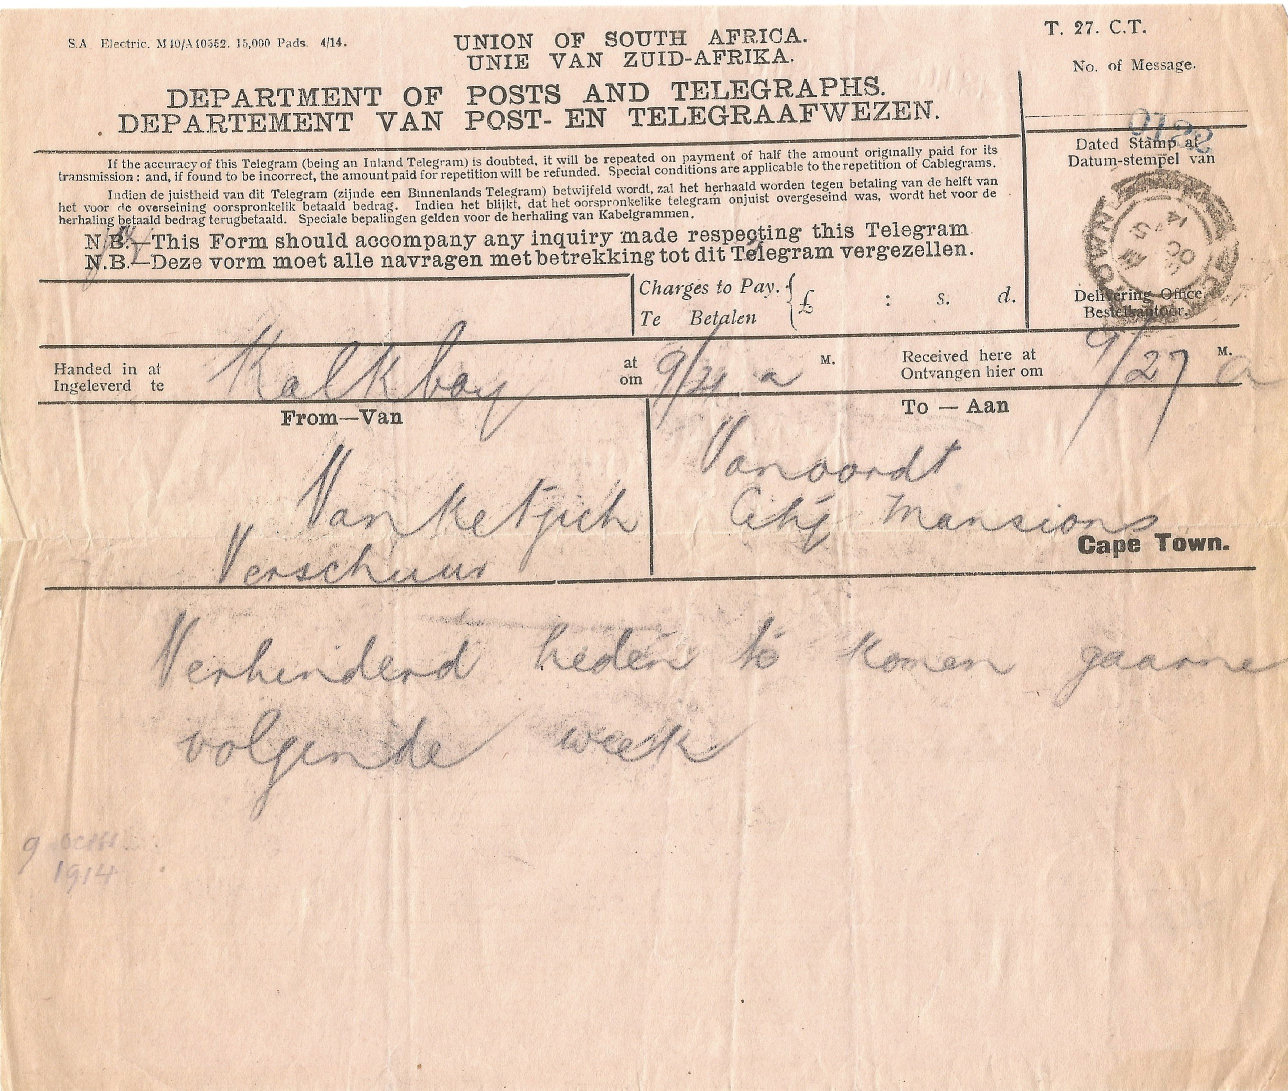 S.A Electric. M10/A10552. 15,000 Pads. 4/14.
UNION OF SOUTH AFRICA.
UNIE VAN ZUID-AFRIKA.
T. 27. C.T.
No. of Message.
DEPARTMENT OF POSTS AND TELEGRAPHS.
DEPARTEMENT VAN POST- EN TELEGRAAFWEZEN.
If the accuracy of this Telegram (being an Inland Telegram) is doubted, it will be repeated on payment of half the amount originally paid for its
transmission: and, if found to be incorrect, the amount paid for repetition will be refunded. Special conditions are applicable to the repetition of Cablegrams.
Indien de juistheid van dit Telegram (zijnde een Binnenlands Telegram) betwijfeld wordt, zal het herhaald worden tegen betaling van de helft van
het voor de overseining oorspronkelik betaald bedrag. Indien het blijkt, dat het oorspronkelike telegram onjuist overgeseind was, wordt het voor de
herhaling betaald bedrag terugbetaald. Speciale bepalingen gelden voor de herhaling van Kabelgrammen.
N.B.—This Form should accompany any inquiry made respecting this Telegram
N.B.—Deze vorm moet alle navragen met betrekking tot dit Telegram vergezellen.
Dated Stamp of
Datum-stempel van
Delivering Office.
Bestelkantoor.
Charges to Pay. £ : s. d.
Te Betalen
Handed in at
Ingeleverd te
Kalkbay
at
om
9/21 a
M.
Received here at
Ontvangen hier om
9/27 a
M.
From—Van
To — Aan
Van Ketjich
Verschuur
Vanoordt
City Mansions
Cape Town.
Verhinderd heden to komen gaarne
volgende week
9
1914